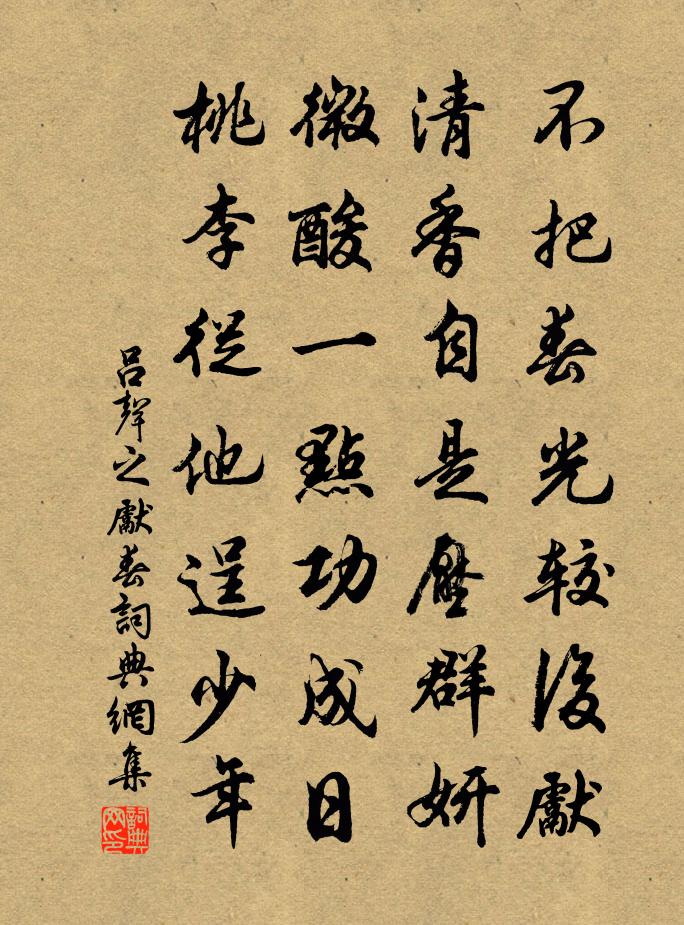 不把春光较後獻
清香自是壓群妍
微酸一點功成日
桃李從他逞少年
呂聲之獻春詞典網集
詞典網印